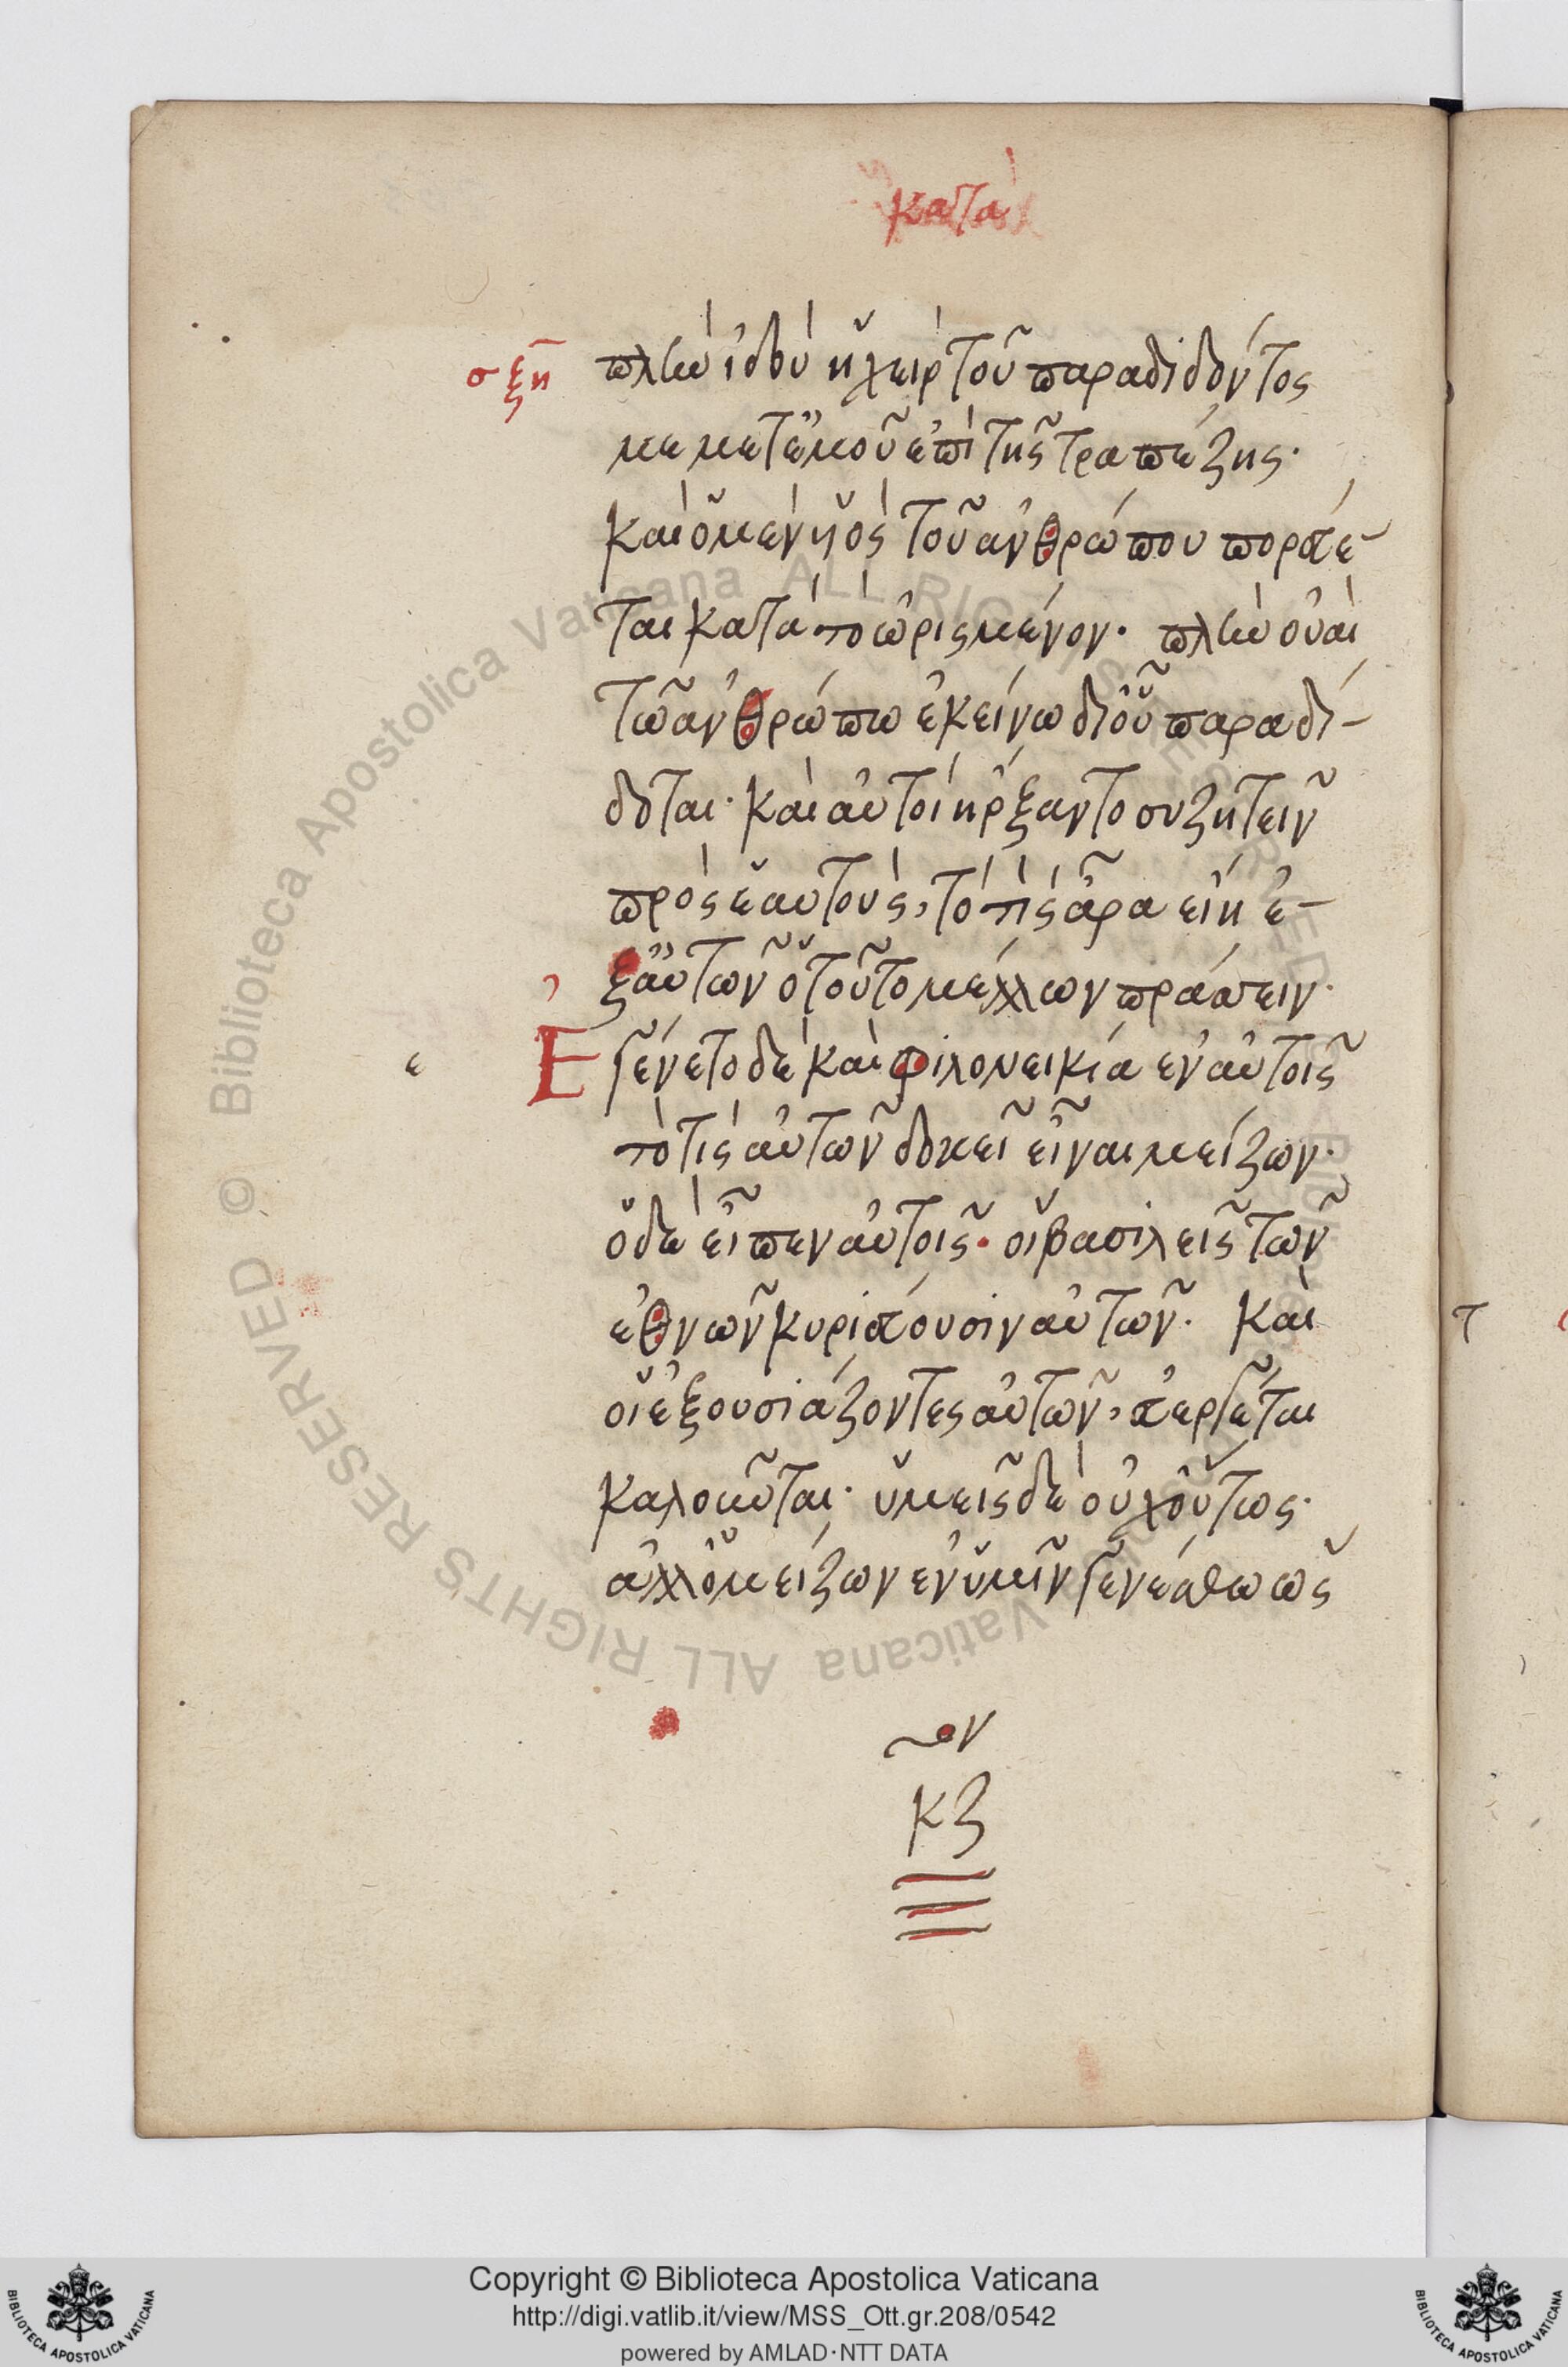 κατὰ
σξη πλὴν ἰδοὺ ἡ χεὶρ τοῦ παραδιδόντος
με μετ ἐμοῦ ἐπὶ τῆς τραπέζης·
καὶ ὁ μὲν ὑὸς τοῦ ἀνθρώπου πορεύε-
ται κατὰ τὸ ὡρισμένον· πλὴν οὐαὶ
τῶ ἀνθρώπω ἐκείνω δι οὗ παραδί-
δοται· καὶ αὐτοὶ ἤρξαντο συζητεῖν
πρὸς ἑαυτοὺς, τὸ τίς ἆρα εἴη ἐ-
ξ αὐτῶν ὁ τοῦτο μέλλων πράσσειν·
ε Ἐγένετο δὲ καὶ φιλονεικία ἐν αὐτοῖς
τὸ τίς αὐτῶν δοκεῖ εἶναι μείζων·
ὁ δὲ εἶπεν αὐτοῖς· οἱ βασιλεῖς τῶν
ἐθνῶν κυριεύουσιν αὐτῶν· καὶ
οἱ ἐξουσιάζοντες αὐτῶν, εὐεργέται
καλοῦνται· ὑμεῖς δὲ οὐχ οὕτως·
ἀλλ ὁ μείζων ἐν ὑμῖν γενέσθω ὡς
ον
κζ
Copyright © Biblioteca Apostolica Vaticana
http://digi.vatlib.it/view/MSS_Ott.gr.208/0542
powered by AMLAD·NTT DATA
BIBLIOTECA APOSTOLICA VATICANA
BIBLIOTECA APOSTOLICA VATICANA
Biblioteca Apostolica Vaticana ALL RIGHTS RESERVED
© Biblioteca Apostolica Vaticana ALL RIGHTS RESERVED